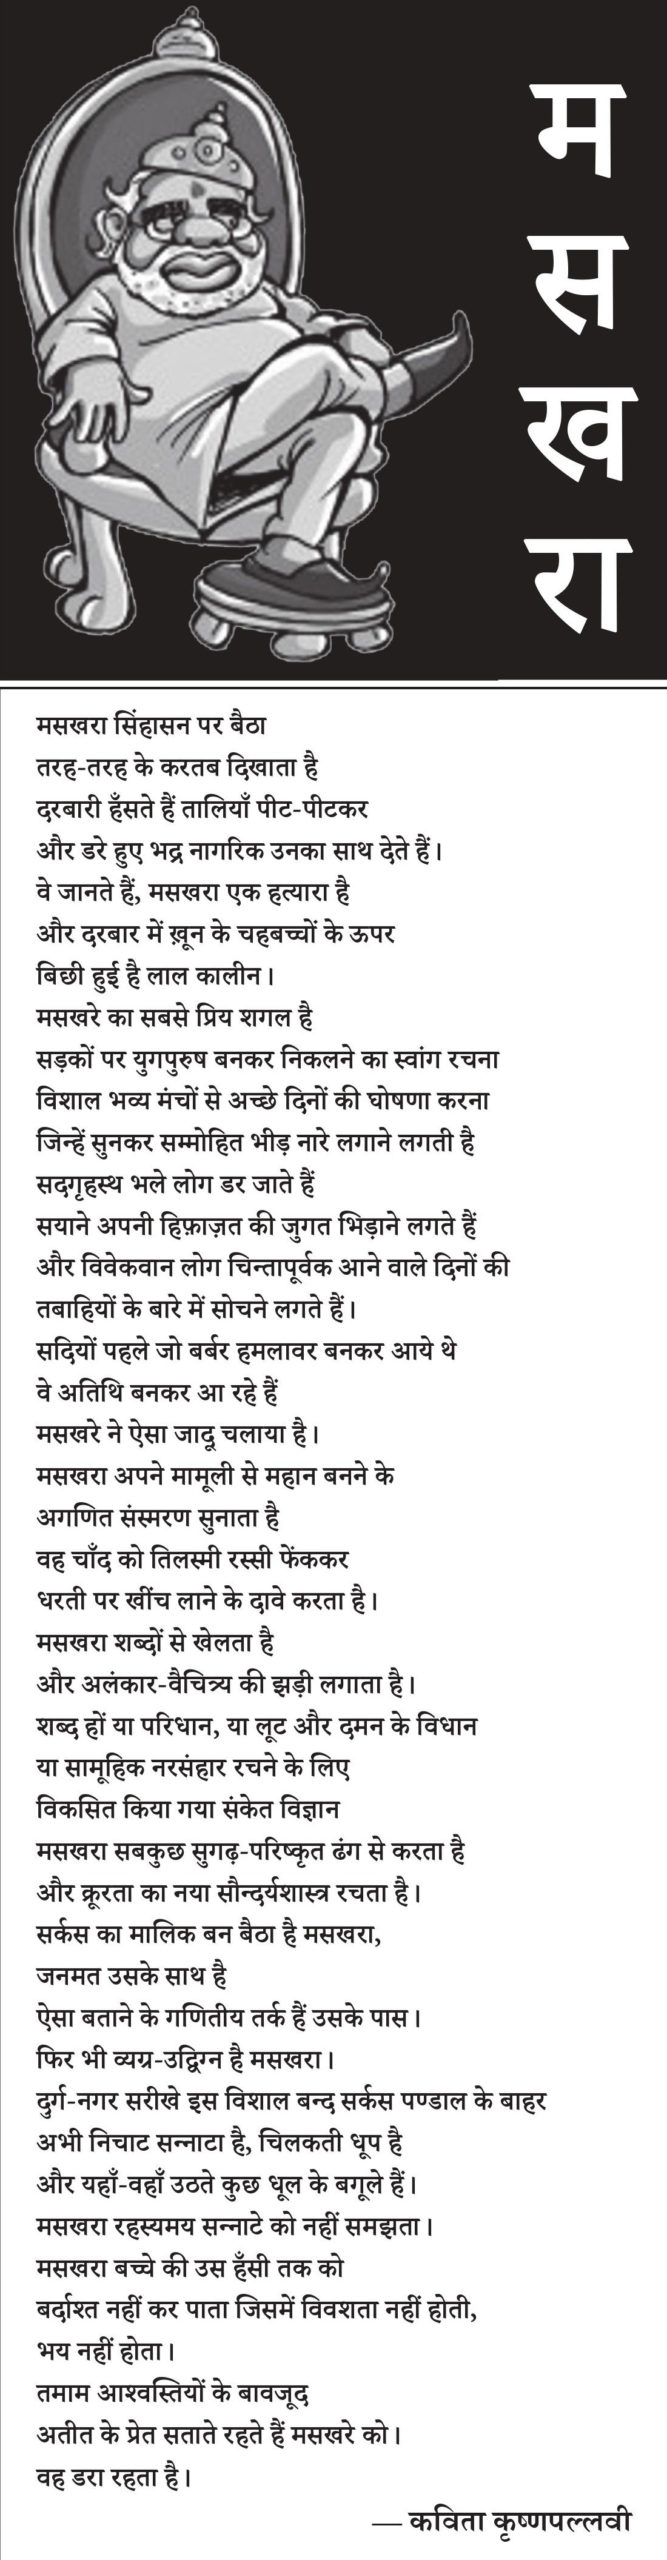 म
स
ख
रा
मसखरा सिंहासन पर बैठा
तरह-तरह के करतब दिखाता है
दरबारी हँसते हैं तालियाँ पीट-पीटकर
और डरे हुए भद्र नागरिक उनका साथ देते हैं।
वे जानते हैं, मसखरा एक हत्यारा है
और दरबार में ख़ून के चहबच्चों के ऊपर
बिछी हुई है लाल कालीन।
मसखरे का सबसे प्रिय शगल है
सड़कों पर युगपुरुष बनकर निकलने का स्वांग रचना
विशाल भव्य मंचों से अच्छे दिनों की घोषणा करना
जिन्हें सुनकर सम्मोहित भीड़ नारे लगाने लगती है
सदगृहस्थ भले लोग डर जाते हैं
सयाने अपनी हिफ़ाज़त की जुगत भिड़ाने लगते हैं
और विवेकवान लोग चिन्तापूर्वक आने वाले दिनों की
तबाहियों के बारे में सोचने लगते हैं।
सदियों पहले जो बर्बर हमलावर बनकर आये थे
वे अतिथि बनकर आ रहे हैं
मसखरे ने ऐसा जादू चलाया है।
मसखरा अपने मामूली से महान बनने के
अगणित संस्मरण सुनाता है
वह चाँद को तिलस्मी रस्सी फेंककर
धरती पर खींच लाने के दावे करता है।
मसखरा शब्दों से खेलता है
और अलंकार-वैचित्र्य की झड़ी लगाता है।
शब्द हों या परिधान, या लूट और दमन के विधान
या सामूहिक नरसंहार रचने के लिए
विकसित किया गया संकेत विज्ञान
मसखरा सबकुछ सुगढ़-परिष्कृत ढंग से करता है
और क्रूरता का नया सौन्दर्यशास्त्र रचता है।
सर्कस का मालिक बन बैठा है मसखरा,
जनमत उसके साथ है
ऐसा बताने के गणितीय तर्क हैं उसके पास।
फिर भी व्यग्र-उद्विग्न है मसखरा।
दुर्ग-नगर सरीखे इस विशाल बन्द सर्कस पण्डाल के बाहर
अभी निचाट सन्नाटा है, चिलकती धूप है
और यहाँ-वहाँ उठते कुछ धूल के बगूले हैं।
मसखरा रहस्यमय सन्नाटे को नहीं समझता।
मसखरा बच्चे की उस हँसी तक को
बर्दाश्त नहीं कर पाता जिसमें विवशता नहीं होती,
भय नहीं होता।
तमाम आश्वस्तियों के बावजूद
अतीत के प्रेत सताते रहते हैं मसखरे को।
वह डरा रहता है।
— कविता कृष्णपल्लवी